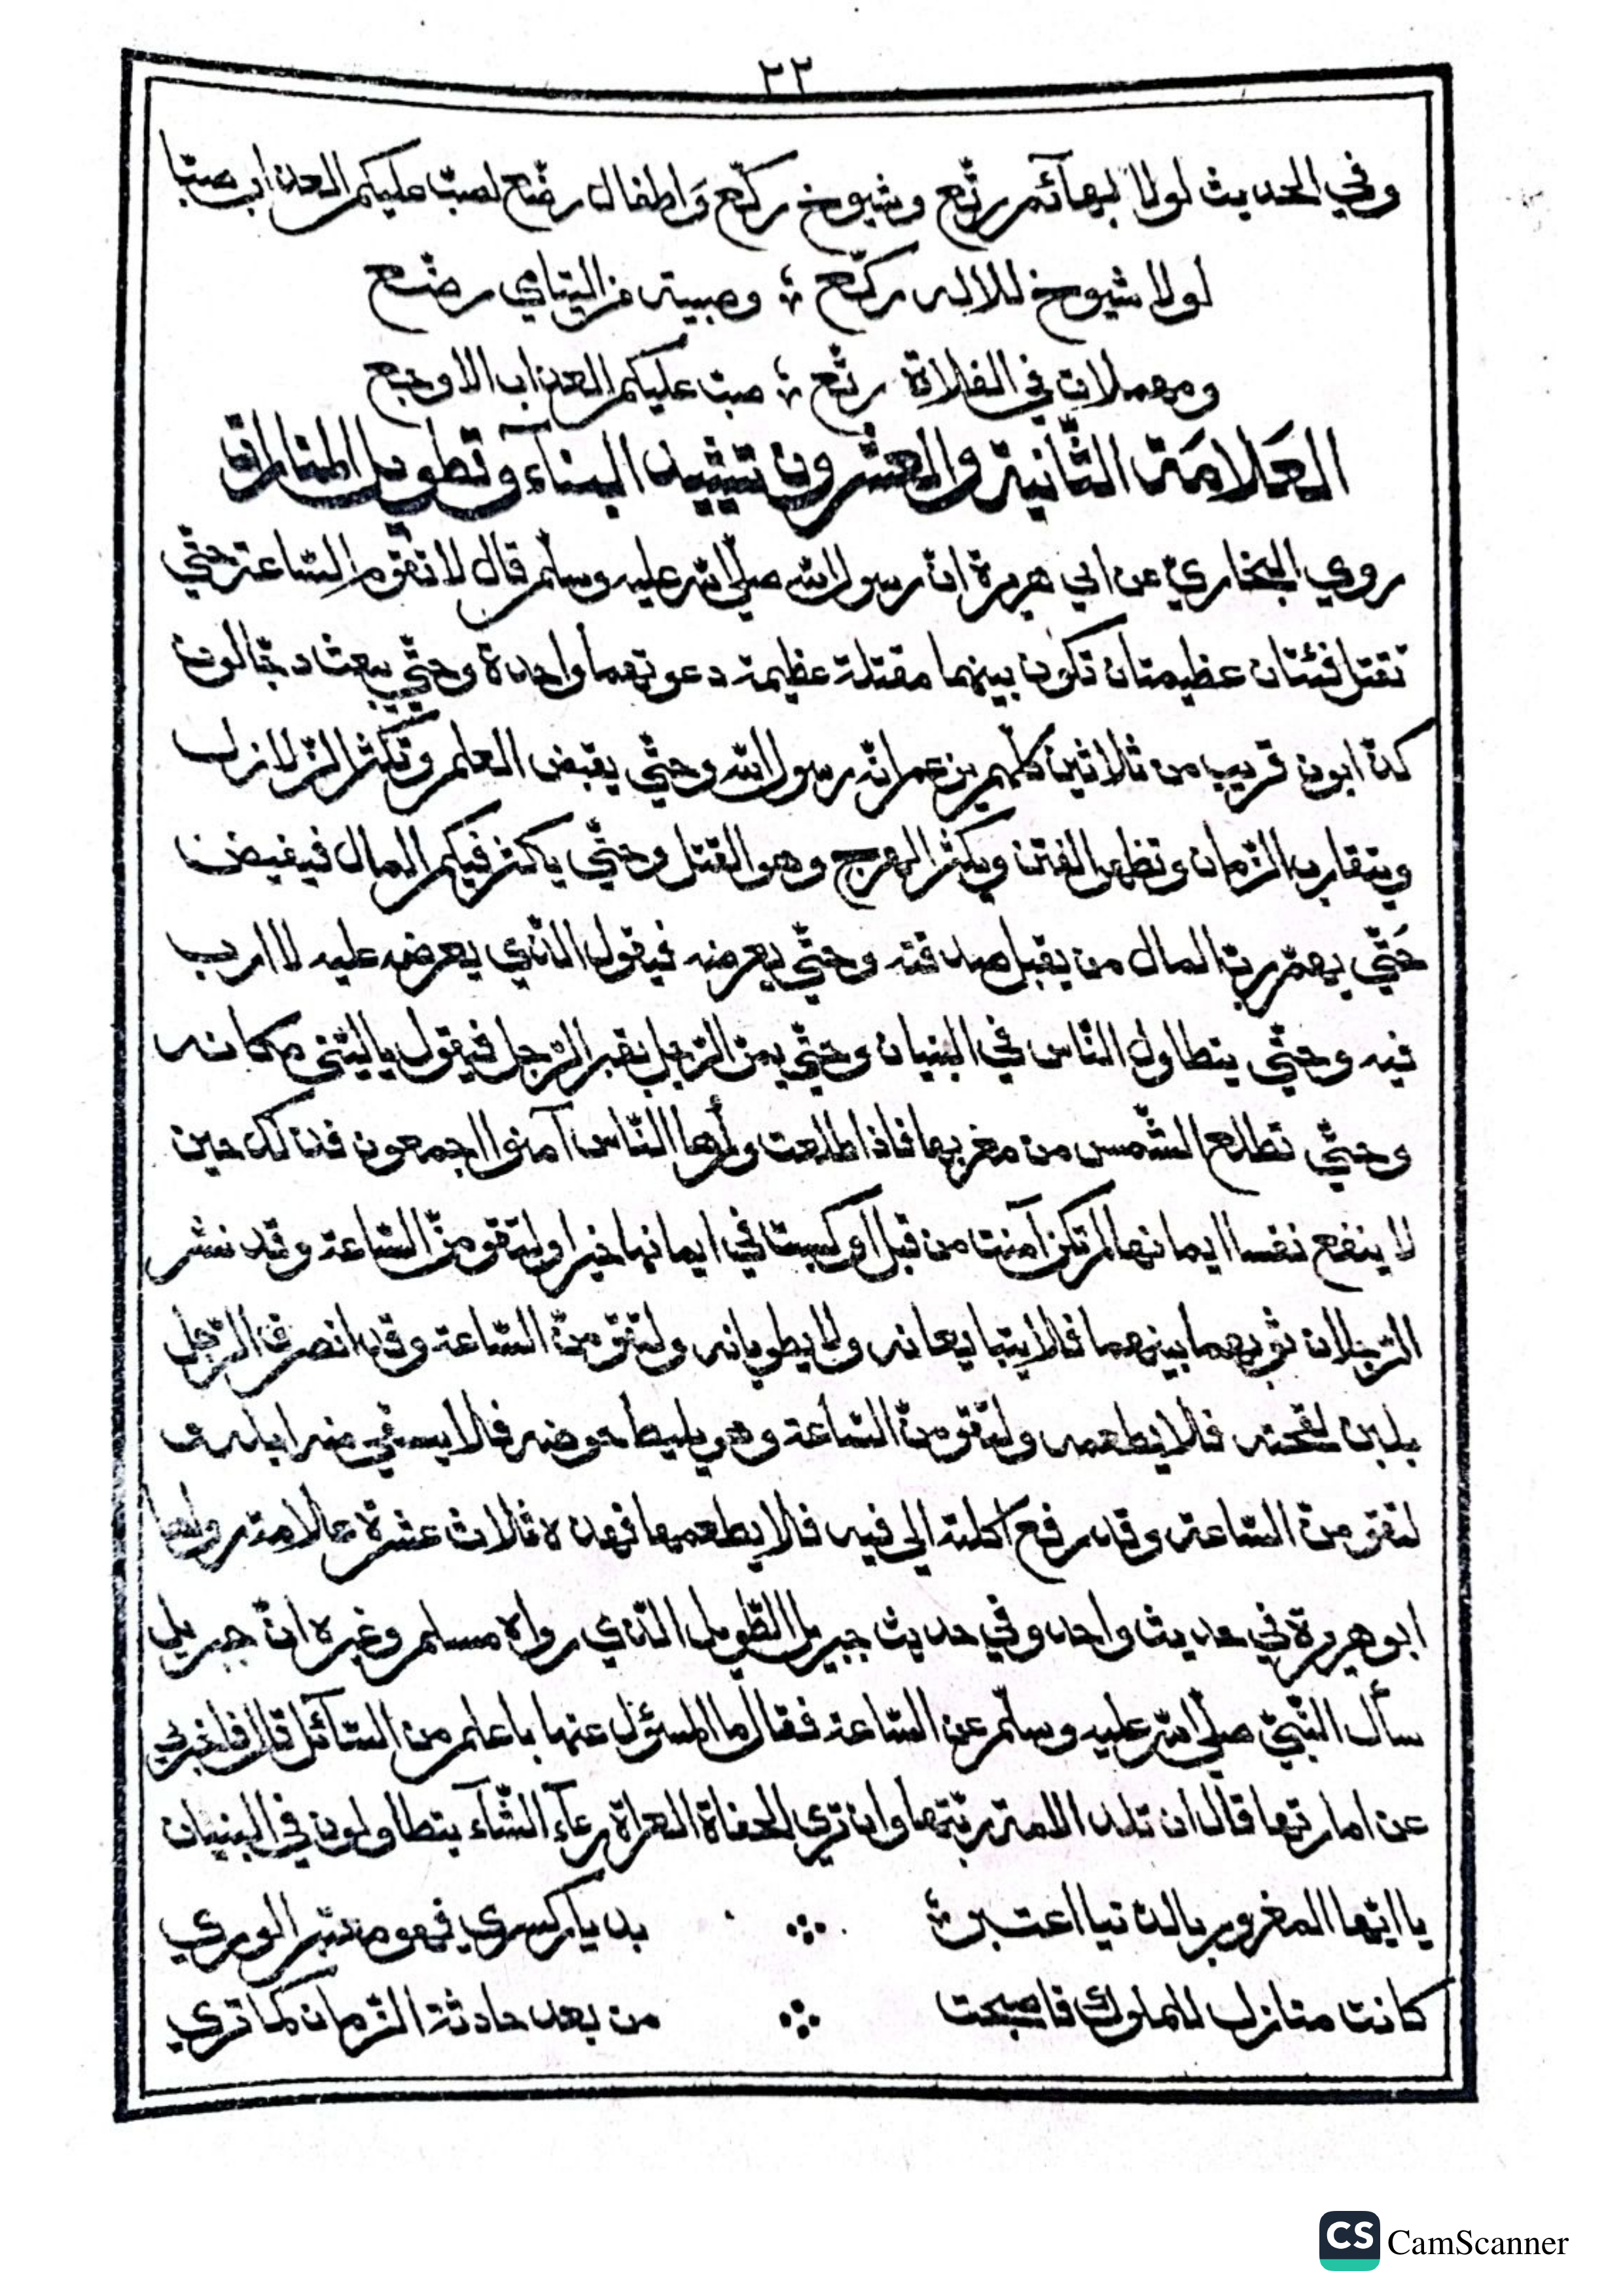 ٢٢
وفي الحديث لولا بهآئم رتّع وشيوخ ركّع وَاطفال رضّع لصبّ عليكم العذاب صبّا
لولا شيوخ للاله ركّع ؛ وصبية من اليتامي رضّع
ومهملات في الفلاة رتّع ؛ صبّ عليكم العذاب الاوجع
العَلامَة الثّانية والعشرون تشييد البنآء وتطويل المنارة
روي البخاريّ عن ابي هريرة انّ رسول اللّه صلّي اللّه عليه وسلّم قال لا تقوم السّاعة حتّي
تقتل فئتان عظيمتان تكون بينهما مقتلة عظيمة دعوتهما واحدة وحتّي يبعث دجّالون
كذّابون قريب من ثلاثين كلّهم يزعم انّه رسول اللّه وحتّي يقبض العلم وتكثر الزّلازل
ويتقارب الزّمان وتظهر الفتن ويكثر الهرج وهو القتل وحتّي يكثر فيكم المال فيفيض
حَتّي يهمّ ربّ المال من يقبل صدقته وحتّي يعرضه فيقول الّذي يعرضه عليه لا ارب
فيه وحتّي يتطاول النّاس في البنيان وحتّي يمرّ الرّجل بقبر الرّجل فيقول ياليتني مكانه
وحتّي تطلع الشّمس من مغربها فاذا طلعت ورأها النّاس آمنوا اجمعون فذلك حين
لا ينفع نفسا ايمانها لم تكن آمنت من قبل او كسبت في ايمانها خيرا ولتقومنّ السّاعة وقد نشر
الرّجلان ثوبهما بينهما فلا يتبايعانه ولا يطويانه ولتقومنّ السّاعة وقد انصرف الرّجل
بلبن لقحته فلا يطعمه ولتقومنّ السّاعة وهو يليط حوضه فلا يسقي منه ابله
لتقومنّ السّاعة وقد رفع اكلته الي فيه فلا يطعمها فهذه ثلاث عشرة علامة رواها
ابوهريرة في حديث واحد وفي حديث جبريل الطّويل الّذي رواه مسلم وغيره انّ جبريل
سأل النّبيّ صلّي اللّه عليه وسلّم عن السّاعة فقال ما المسؤل عنها باعلم من السّآئل قال فاخبرني
عن امارتها قال ان تلد الامة ربّتها وان تري الحفاة العراة رعآء الشّآء يتطاولون في البنيان
يا ايّها المغرور بالدّنيا اعتبر ؛ بديار كسري فهو معتبر الوري
كانت منازل للملوك فاصبحت من بعد حادثة الزّمان كما تري
CS CamScanner